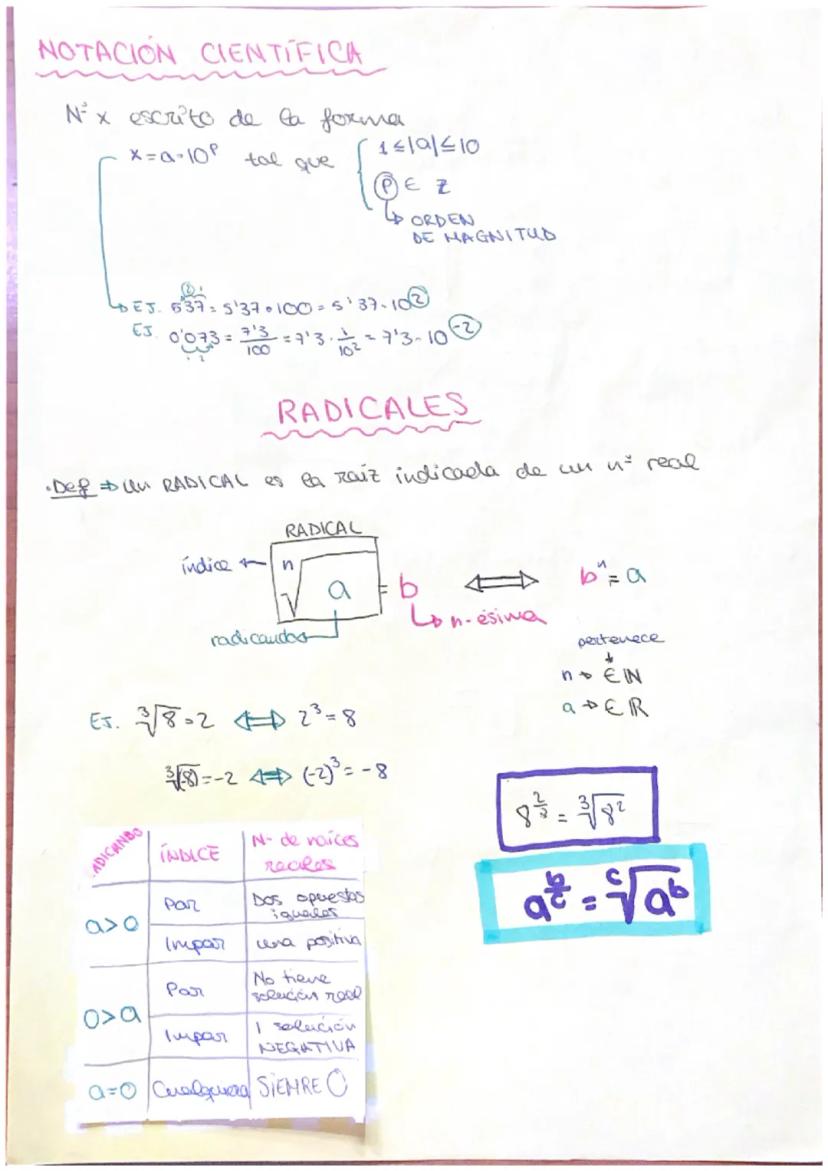 NOTACIÓN CIENTÍFICA
Nº x escrito de la forma
x=a·10ᵖ tal que { 1≤|a|≤10
P ∈ Z
ORDEN
DE MAGNITUD
EJ. 537 = 5'37·100 = 5'37·10²
EJ. 0'073 = 7'3/100 = 7'3·1/10² = 7'3·10⁻²
RADICALES
·Def ⇒ Un RADICAL es la raíz indicada de un nº real
RADICAL
índice ← ⁿ√a = b ⟺ bⁿ = a
n-ésima
radicandos
pertenece
n → ∈ N
a → ∈ R
EJ. ³√8 = 2 ⟺ 2³ = 8
³√(-8) = -2 ⟺ (-2)³ = -8
8^(2/3) = ³√8²
a^(b/c) = ᶜ√aᵇ
ADICANDO ÍNDICE Nº de raíces
reales
a>0 Par Dos opuestas
iguales
Impar una positiva
0>a Par No tiene
solución real
Impar 1 solución
NEGATIVA
a=0 Cualquiera SIEMRE 0